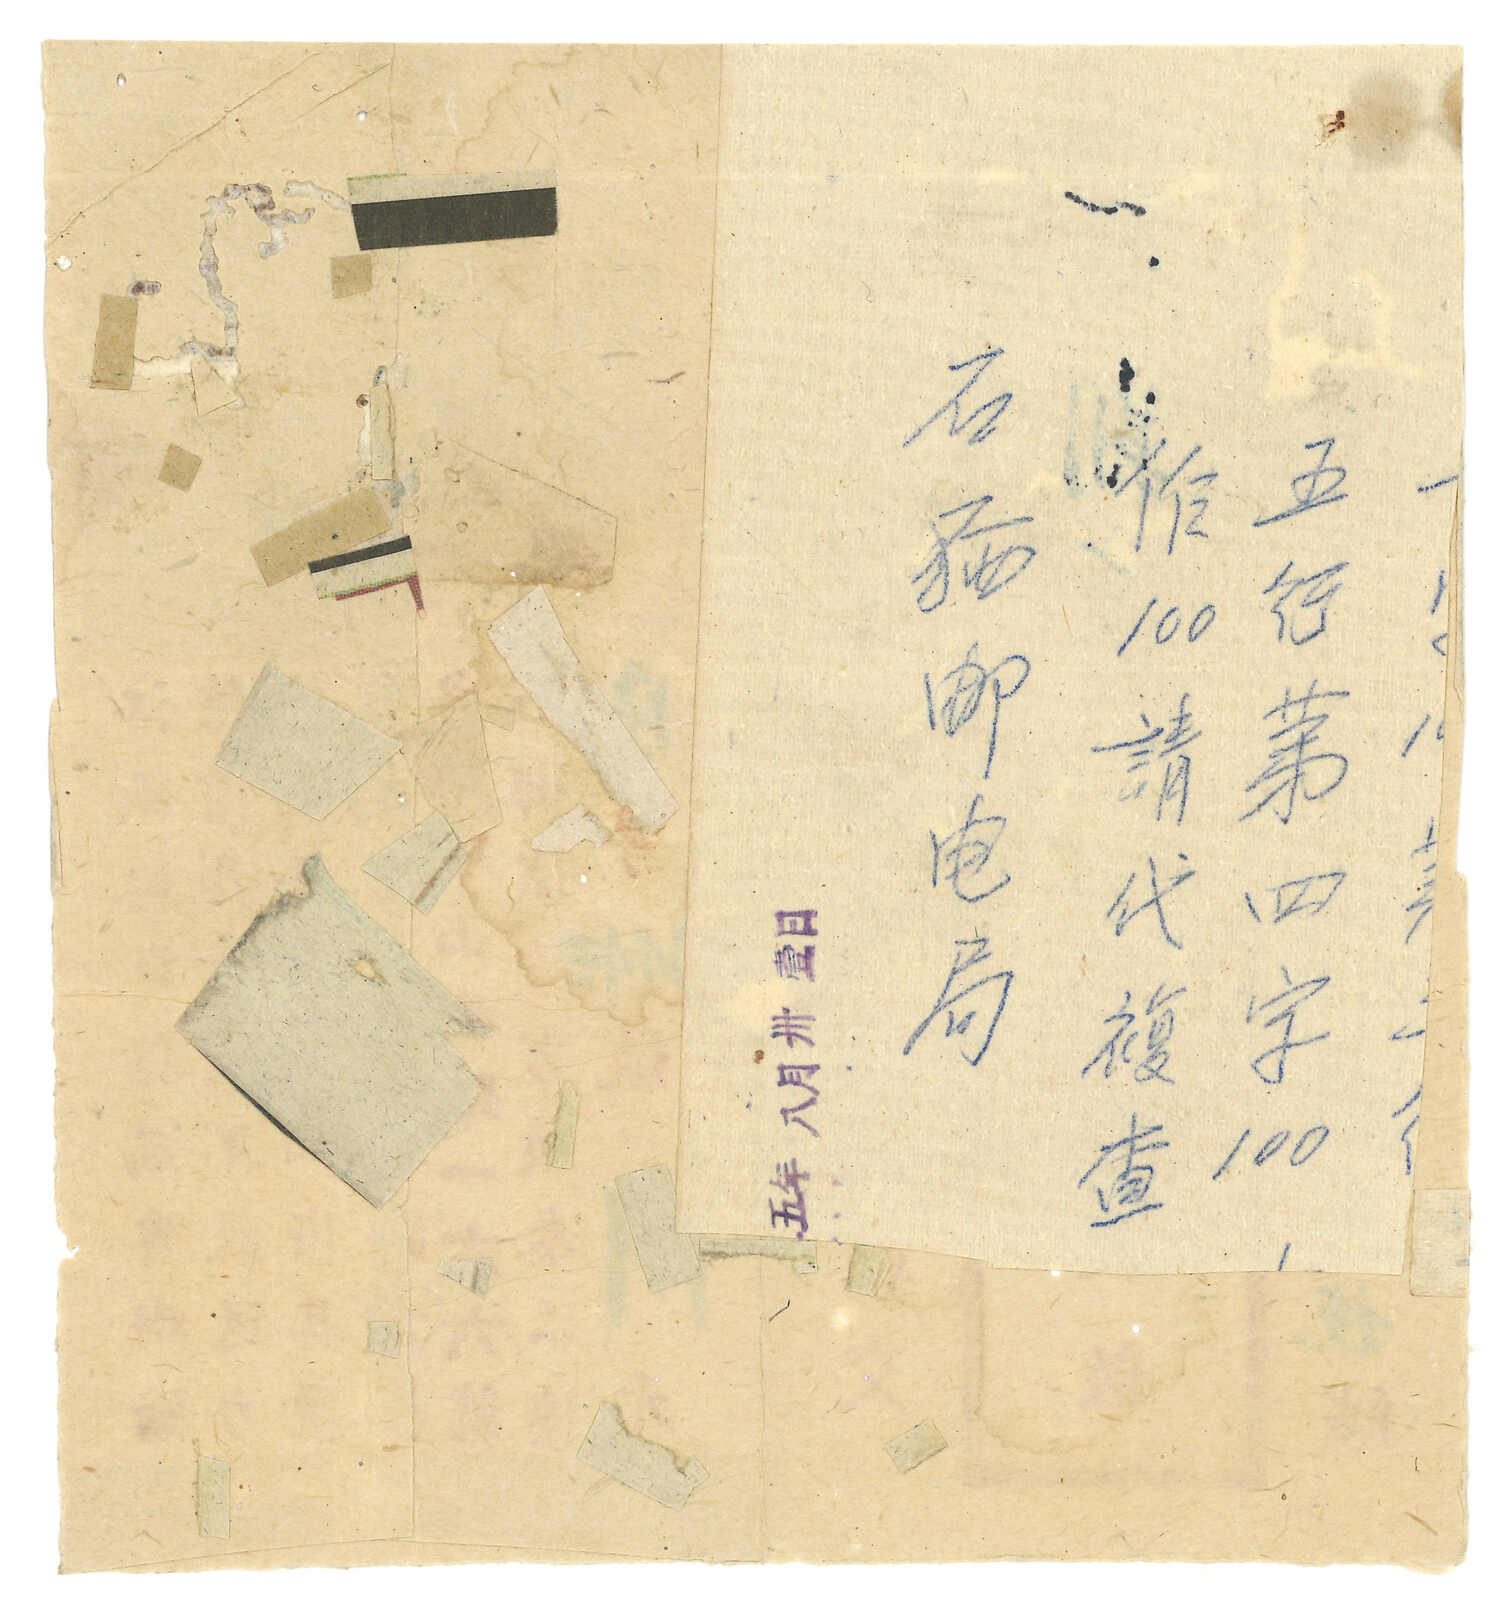 五行第四字100
作100請代複查
石獅邮电局
五年八月卅壹日